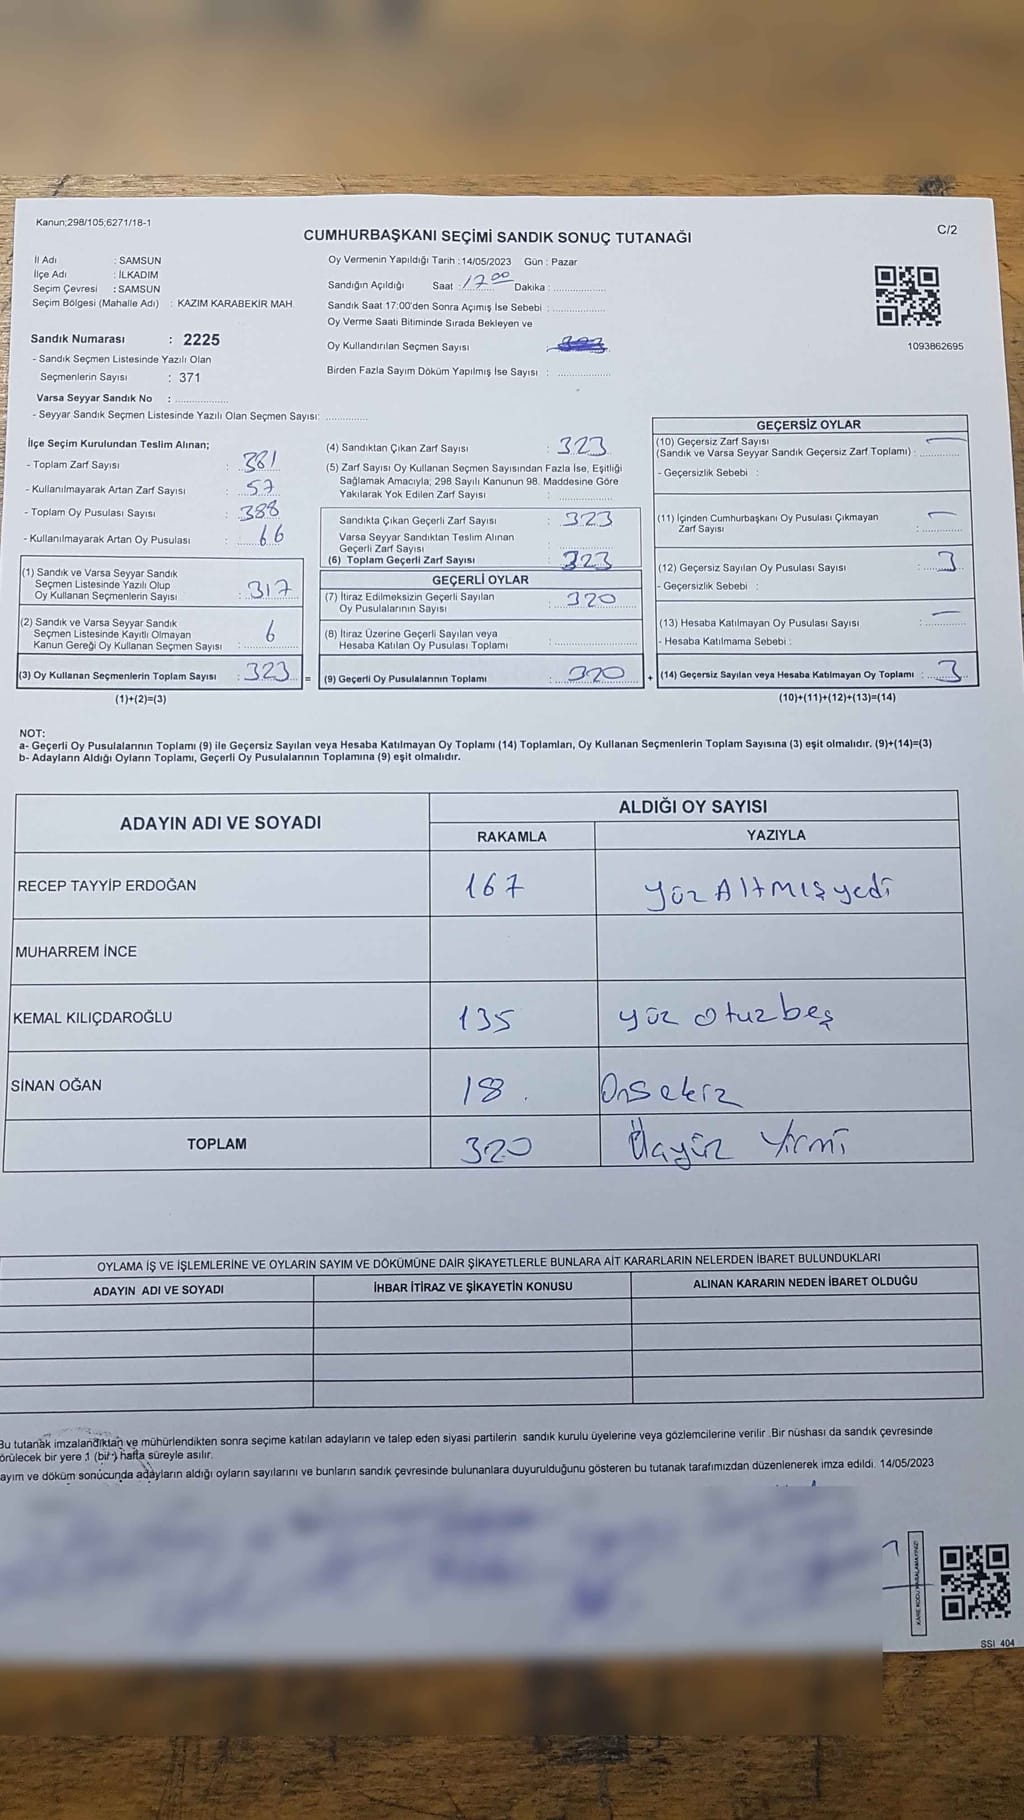 Kanun;298/105;6271/18-1
C/2
CUMHURBAŞKANI SEÇİMİ SANDIK SONUÇ TUTANAĞI
İl Adı : SAMSUN
İlçe Adı : İLKADIM
Seçim Çevresi : SAMSUN
Seçim Bölgesi (Mahalle Adı) : KAZIM KARABEKİR MAH.
Sandık Numarası : 2225
- Sandık Seçmen Listesinde Yazılı Olan
Seçmenlerin Sayısı : 371
Varsa Seyyar Sandık No : ..............
- Seyyar Sandık Seçmen Listesinde Yazılı Olan Seçmen Sayısı: ............
Oy Vermenin Yapıldığı Tarih :14/05/2023 Gün : Pazar
Sandığın Açıldığı Saat : 17.00 Dakika : ..............
Sandık Saat 17:00'den Sonra Açımış İse Sebebi : ..............
Oy Verme Saati Bitiminde Sırada Bekleyen ve
Oy Kullandırılan Seçmen Sayısı
Birden Fazla Sayım Döküm Yapılmış İse Sayısı : ..............
1093862695
İlçe Seçim Kurulundan Teslim Alınan;
- Toplam Zarf Sayısı : 381
- Kullanılmayarak Artan Zarf Sayısı : 57
- Toplam Oy Pusulası Sayısı : 388
- Kullanılmayarak Artan Oy Pusulası : 66
(1) Sandık ve Varsa Seyyar Sandık
Seçmen Listesinde Yazılı Olup
Oy Kullanan Seçmenlerin Sayısı : 317
(2) Sandık ve Varsa Seyyar Sandık
Seçmen Listesinde Kayıtlı Olmayan
Kanun Gereği Oy Kullanan Seçmen Sayısı : 6
(3) Oy Kullanan Seçmenlerin Toplam Sayısı : 323 =
(1)+(2)=(3)
(4) Sandıktan Çıkan Zarf Sayısı : 323
(5) Zarf Sayısı Oy Kullanan Seçmen Sayısından Fazla İse, Eşitliği
Sağlamak Amacıyla; 298 Sayılı Kanunun 98. Maddesine Göre
Yakılarak Yok Edilen Zarf Sayısı : ..............
Sandıkta Çıkan Geçerli Zarf Sayısı : 323
Varsa Seyyar Sandıktan Teslim Alınan
Geçerli Zarf Sayısı : ..............
(6) Toplam Geçerli Zarf Sayısı : 323
GEÇERLİ OYLAR
(7) İtiraz Edilmeksizin Geçerli Sayılan
Oy Pusulalarının Sayısı : 320
(8) İtiraz Üzerine Geçerli Sayılan veya
Hesaba Katılan Oy Pusulası Toplamı : ..............
(9) Geçerli Oy Pusulalarının Toplamı : 320 +
GEÇERSİZ OYLAR
(10) Geçersiz Zarf Sayısı
(Sandık ve Varsa Seyyar Sandık Geçersiz Zarf Toplamı) : —
- Geçersizlik Sebebi :
(11) İçinden Cumhurbaşkanı Oy Pusulası Çıkmayan
Zarf Sayısı : —
(12) Geçersiz Sayılan Oy Pusulası Sayısı : 3
- Geçersizlik Sebebi :
(13) Hesaba Katılmayan Oy Pusulası Sayısı : —
- Hesaba Katılmama Sebebi :
(14) Geçersiz Sayılan veya Hesaba Katılmayan Oy Toplamı : 3
(10)+(11)+(12)+(13)=(14)
NOT:
a- Geçerli Oy Pusulalarının Toplamı (9) ile Geçersiz Sayılan veya Hesaba Katılmayan Oy Toplamı (14) Toplamları, Oy Kullanan Seçmenlerin Toplam Sayısına (3) eşit olmalıdır. (9)+(14)=(3)
b- Adayların Aldığı Oyların Toplamı, Geçerli Oy Pusulalarının Toplamına (9) eşit olmalıdır.
ADAYIN ADI VE SOYADI ALDIĞI OY SAYISI
RAKAMLA YAZIYLA
RECEP TAYYİP ERDOĞAN 167 yüz Altmış yedi
MUHARREM İNCE
KEMAL KILIÇDAROĞLU 135 yüz otuzbeş
SİNAN OĞAN 18 . Onsekiz
TOPLAM 320 Üçyüz Yirmi
OYLAMA İŞ VE İŞLEMLERİNE VE OYLARIN SAYIM VE DÖKÜMÜNE DAİR ŞİKAYETLERLE BUNLARA AİT KARARLARIN NELERDEN İBARET BULUNDUKLARI
ADAYIN ADI VE SOYADI İHBAR İTİRAZ VE ŞİKAYETİN KONUSU ALINAN KARARIN NEDEN İBARET OLDUĞU
Bu tutanak imzalandıktan ve mühürlendikten sonra seçime katılan adayların ve talep eden siyasi partilerin sandık kurulu üyelerine veya gözlemcilerine verilir .Bir nüshası da sandık çevresinde
örülecek bir yere 1 (bir) hafta süreyle asılır.
ayım ve döküm sonucunda adayların aldığı oyların sayılarını ve bunların sandık çevresinde bulunanlara duyurulduğunu gösteren bu tutanak tarafımızdan düzenlenerek imza edildi. 14/05/2023
KARE KODU KARALAMAYINIZ!
SSI_404